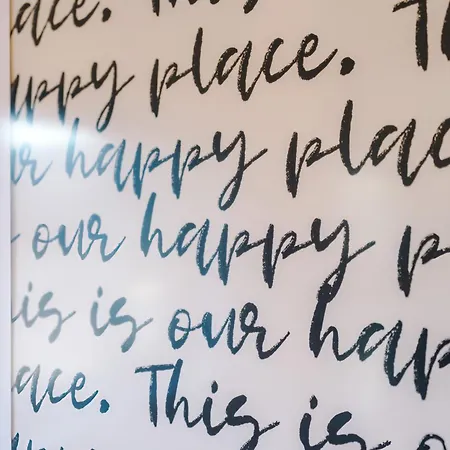 place. This
happy place. Th
our happy place
our happy p
this is our hap
place. This is o